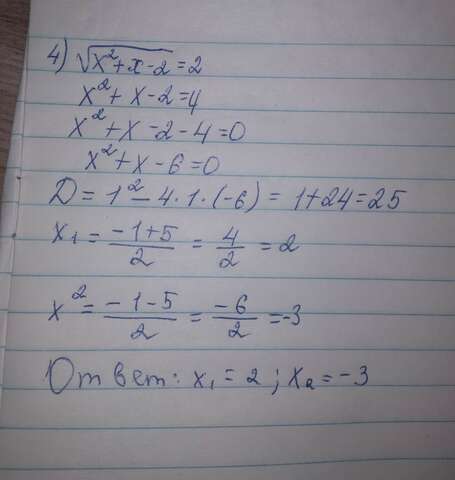 4) √(x²+x-2) = 2
x²+x-2=4
x²+x-2-4=0
x²+x-6=0
D = 1²-4·1·(-6) = 1+24=25
x₁ = (-1+5)/2 = 4/2 = 2
x² = (-1-5)/2 = -6/2 = -3
Ответ: x₁ = 2; x₂ = -3